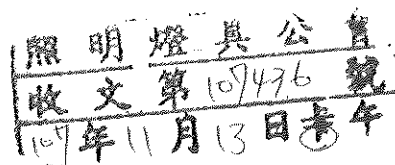 照明燈具公會
收文第107436號
107年11月13日午